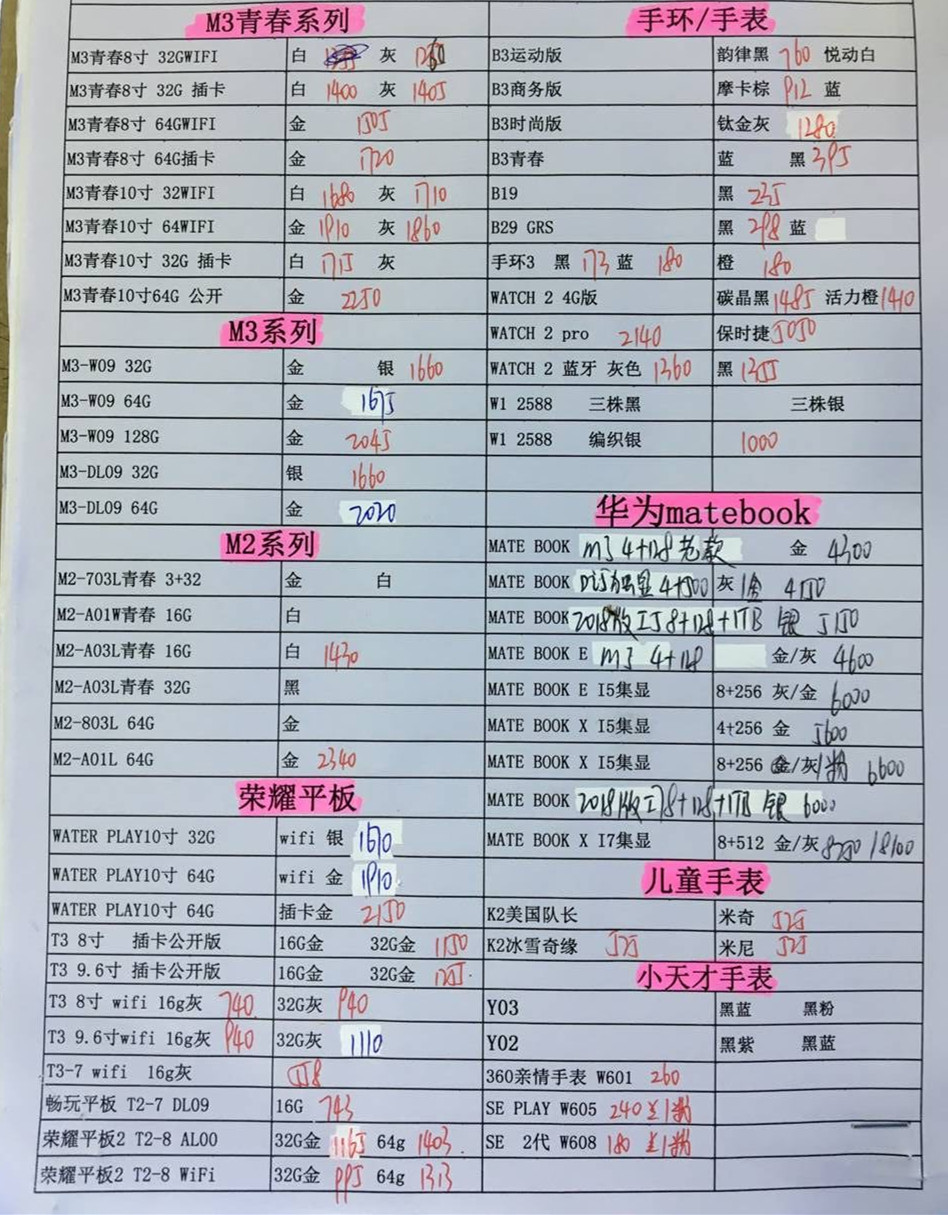 M3青春系列
M3青春8寸 32GWIFI 白 灰
M3青春8寸 32G 插卡 白 1400 灰 1405
M3青春8寸 64GWIFI 金 1505
M3青春8寸 64G插卡 金 1720
M3青春10寸 32WIFI 白 1680 灰 1710
M3青春10寸 64WIFI 金 1910 灰 1860
M3青春10寸 32G 插卡 白 1715 灰
M3青春10寸64G 公开 金 2250
M3系列
M3-W09 32G 金 银 1660
M3-W09 64G 金 1675
M3-W09 128G 金 2045
M3-DL09 32G 银 1660
M3-DL09 64G 金 2020
M2系列
M2-703L青春 3+32 金 白
M2-A01W青春 16G 白
M2-A03L青春 16G 白 1430
M2-A03L青春 32G 黑
M2-803L 64G 金
M2-A01L 64G 金 2340
荣耀平板
WATER PLAY10寸 32G wifi 银 1670
WATER PLAY10寸 64G wifi 金 1910
WATER PLAY10寸 64G 插卡金 2150
T3 8寸 插卡公开版 16G金 32G金 1150
T3 9.6寸 插卡公开版 16G金 32G金
T3 8寸 wifi 16g灰 740 32G灰 940
T3 9.6寸wifi 16g灰 940 32G灰 1110
T3-7 wifi 16g灰 558
畅玩平板 T2-7 DL09 16G 743
荣耀平板2 T2-8 AL00 32G金 1165 64g 1403
荣耀平板2 T2-8 WiFi 32G金 995 64g 1313
手环/手表
B3运动版 韵律黑 760 悦动白
B3商务版 摩卡棕 912 蓝
B3时尚版 钛金灰 1280
B3青春 蓝 黑 395
B19 黑 235
B29 GRS 黑 298 蓝
手环3 黑 173 蓝 180 橙 180
WATCH 2 4G版 碳晶黑 1485 活力橙 1410
WATCH 2 pro 2140 保时捷 5050
WATCH 2 蓝牙 灰色 1360 黑 1355
W1 2588 三株黑 三株银
W1 2588 编织银 1000
华为matebook
MATE BOOK M3 4+128老款 金 4300
MATE BOOK 4+500 灰/金 4150
MATE BOOK 2018版I5 8+128+1TB 银 5150
MATE BOOK E M3 4+128 金/灰 4600
MATE BOOK E I5集显 8+256 灰/金 6000
MATE BOOK X I5集显 4+256 金 5600
MATE BOOK X I5集显 8+256 金/灰/粉 6600
MATE BOOK 2018版I7 8+128+1TB 银 6000
MATE BOOK X I7集显 8+512 金/灰 8250/8100
儿童手表
K2美国队长 米奇 525
K2冰雪奇缘 525 米尼 525
小天才手表
Y03 黑蓝 黑粉
Y02 黑紫 黑蓝
360亲情手表 W601 260
SE PLAY W605 240 兰/粉
SE 2代 W608 180 兰/粉